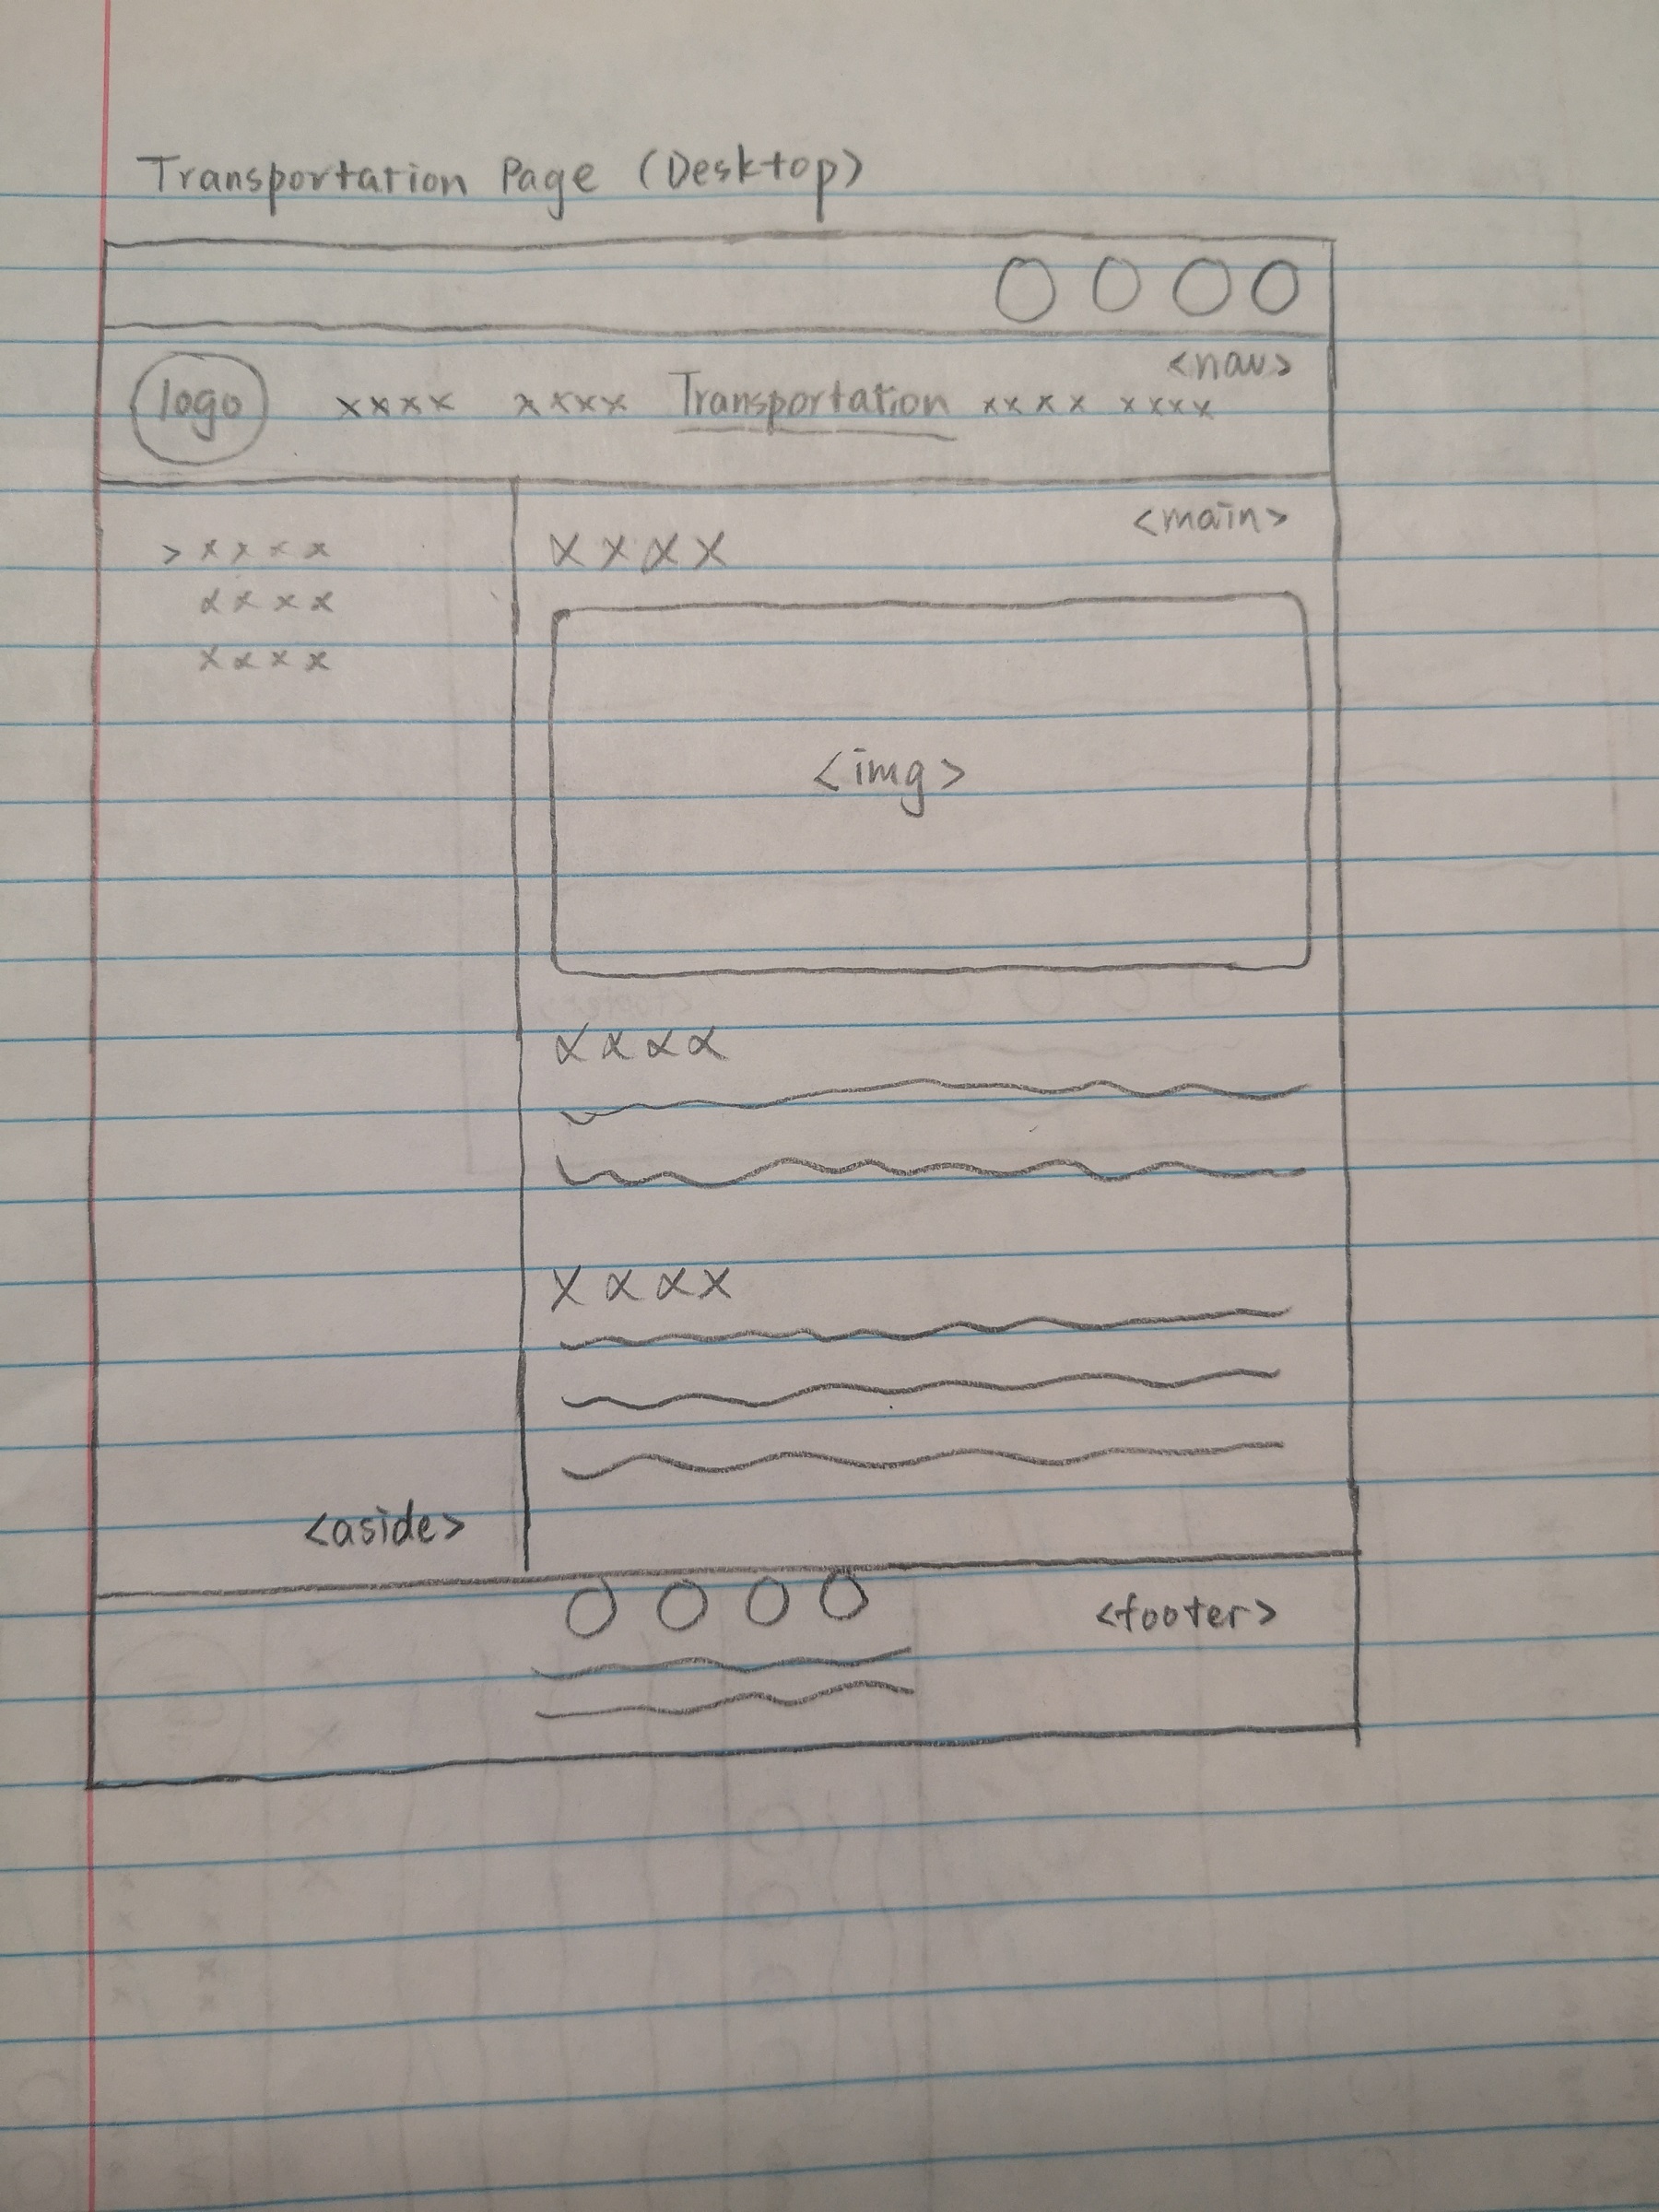 Transportation Page (Desktop)
<nav>
logo xxxx xxxx Transportation xxxx xxxx
<main>
> xxxx
xxxx
xxxx
xxxx
<img>
xxxx
xxxx
<aside>
<footer>